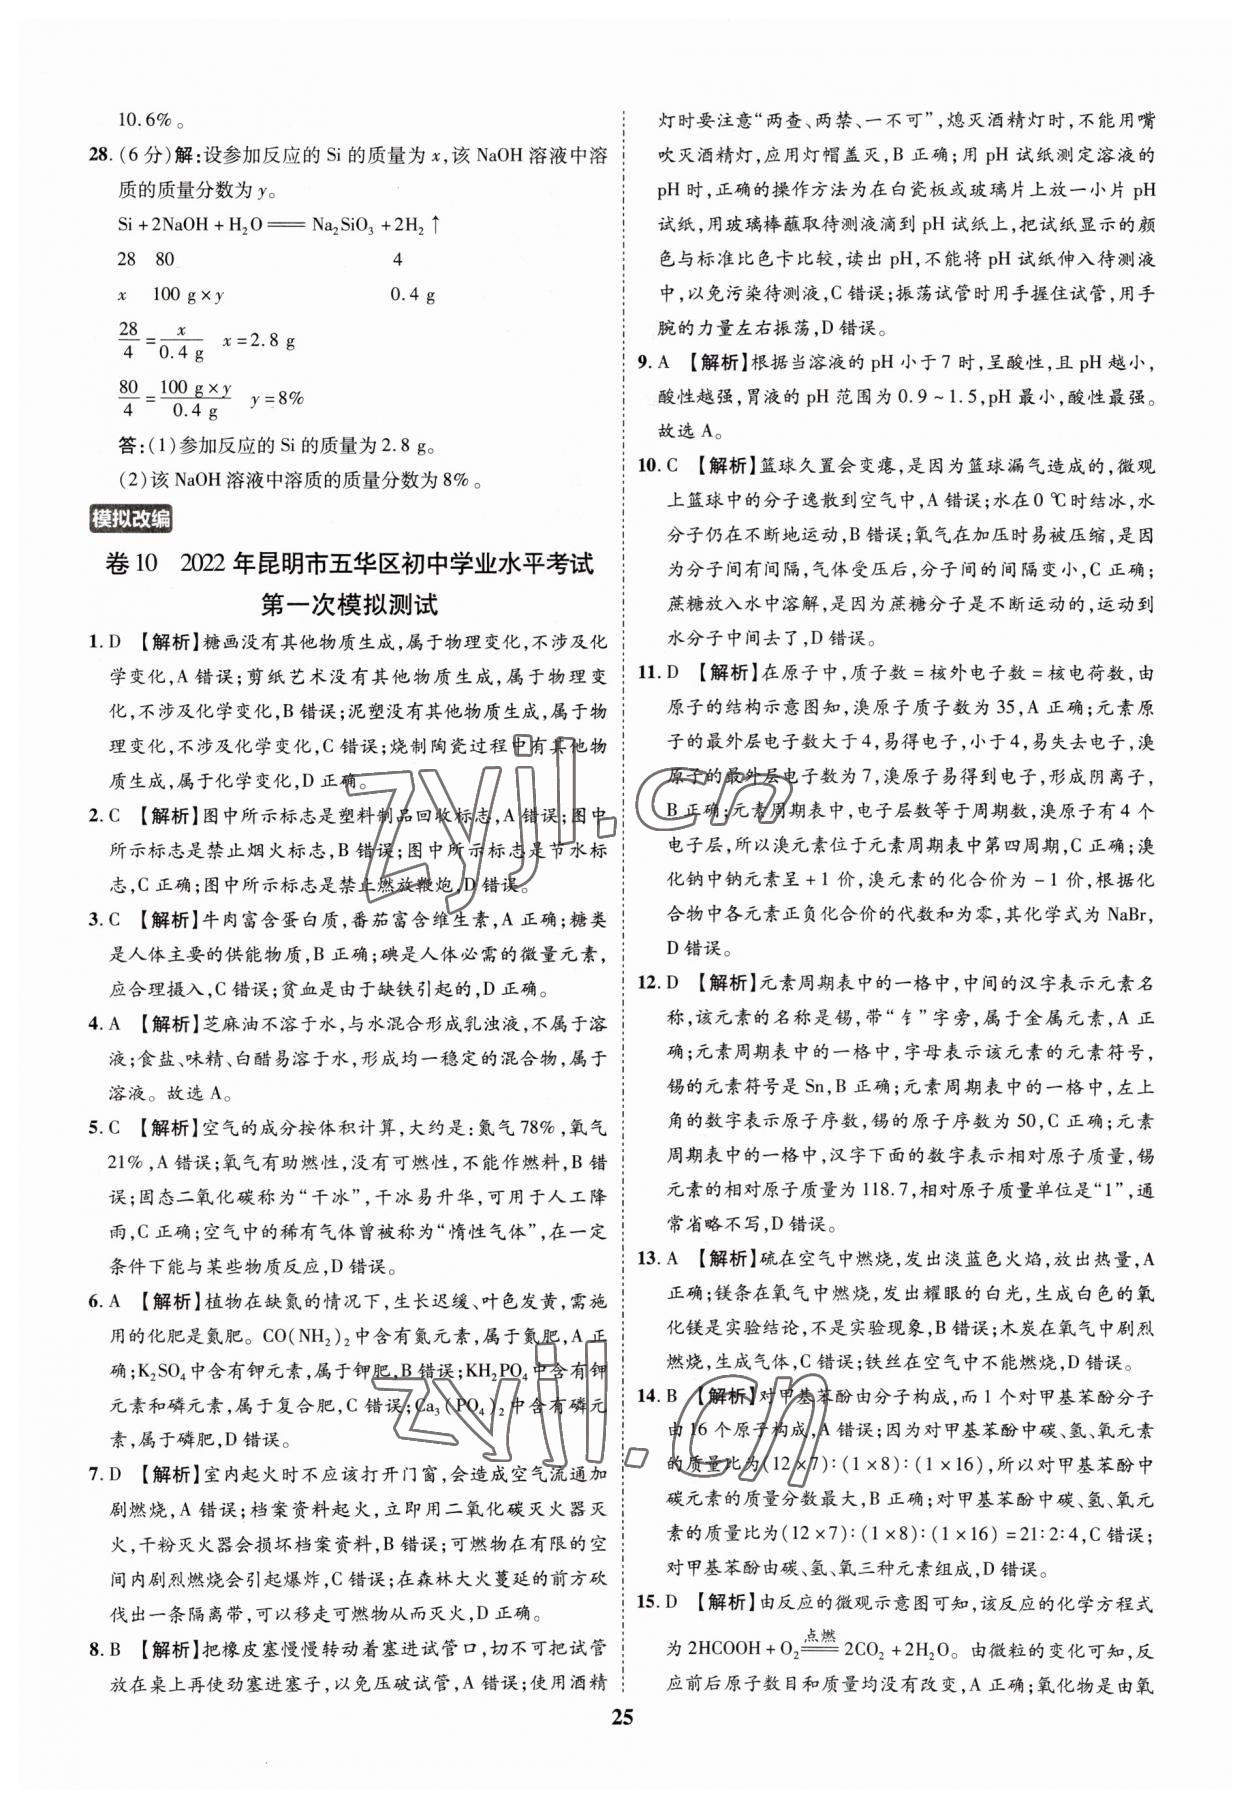 10.6%。
28.(6分)解:设参加反应的 Si 的质量为 x,该 NaOH 溶液中溶
质的质量分数为 y。
Si+2NaOH+H₂O═══Na₂SiO₃+2H₂↑
28 80 4
x 100 g×y 0.4 g
28/4=x/0.4 g x=2.8 g
80/4=100 g×y/0.4 g y=8%
答:(1)参加反应的 Si 的质量为2.8 g。
(2)该 NaOH 溶液中溶质的质量分数为8%。
模拟改编
卷10 2022年昆明市五华区初中学业水平考试
第一次模拟测试
1. D 【解析】糖画没有其他物质生成,属于物理变化,不涉及化
学变化,A 错误;剪纸艺术没有其他物质生成,属于物理变
化,不涉及化学变化,B 错误;泥塑没有其他物质生成,属于物
理变化,不涉及化学变化,C 错误;烧制陶瓷过程中有其他物
质生成,属于化学变化,D 正确。
2. C 【解析】图中所示标志是塑料制品回收标志,A 错误;图中
所示标志是禁止烟火标志,B 错误;图中所示标志是节水标
志,C 正确;图中所示标志是禁止燃放鞭炮,D 错误。
3. C 【解析】牛肉富含蛋白质,番茄富含维生素,A 正确;糖类
是人体主要的供能物质,B 正确;碘是人体必需的微量元素,
应合理摄入,C 错误;贫血是由于缺铁引起的,D 正确。
4. A 【解析】芝麻油不溶于水,与水混合形成乳浊液,不属于溶
液;食盐、味精、白醋易溶于水,形成均一稳定的混合物,属于
溶液。故选 A。
5. C 【解析】空气的成分按体积计算,大约是:氮气78%,氧气
21%,A 错误;氧气有助燃性,没有可燃性,不能作燃料,B 错
误;固态二氧化碳称为“干冰”,干冰易升华,可用于人工降
雨,C 正确;空气中的稀有气体曾被称为“惰性气体”,在一定
条件下能与某些物质反应,D 错误。
6. A 【解析】植物在缺氮的情况下,生长迟缓、叶色发黄,需施
用的化肥是氮肥。CO(NH₂)₂中含有氮元素,属于氮肥,A 正
确;K₂SO₄中含有钾元素,属于钾肥,B 错误;KH₂PO₄中含有钾
元素和磷元素,属于复合肥,C 错误;Ca₃(PO₄)₂中含有磷元
素,属于磷肥,D 错误。
7. D 【解析】室内起火时不应该打开门窗,会造成空气流通加
剧燃烧,A 错误;档案资料起火,立即用二氧化碳灭火器灭
火,干粉灭火器会损坏档案资料,B 错误;可燃物在有限的空
间内剧烈燃烧会引起爆炸,C 错误;在森林大火蔓延的前方砍
伐出一条隔离带,可以移走可燃物从而灭火,D 正确。
8. B 【解析】把橡皮塞慢慢转动着塞进试管口,切不可把试管
放在桌上再使劲塞进塞子,以免压破试管,A 错误;使用酒精
灯时要注意“两查、两禁、一不可”,熄灭酒精灯时,不能用嘴
吹灭酒精灯,应用灯帽盖灭,B 正确;用 pH 试纸测定溶液的
pH 时,正确的操作方法为在白瓷板或玻璃片上放一小片 pH
试纸,用玻璃棒蘸取待测液滴到 pH 试纸上,把试纸显示的颜
色与标准比色卡比较,读出 pH,不能将 pH 试纸伸入待测液
中,以免污染待测液,C 错误;振荡试管时用手握住试管,用手
腕的力量左右振荡,D 错误。
9. A 【解析】根据当溶液的 pH 小于7时,呈酸性,且 pH 越小,
酸性越强,胃液的 pH 范围为0.9~1.5,pH 最小,酸性最强。
故选 A。
10. C 【解析】篮球久置会变瘪,是因为篮球漏气造成的,微观
上篮球中的分子逸散到空气中,A 错误;水在0 ℃时结冰,水
分子仍在不断地运动,B 错误;氧气在加压时易被压缩,是因
为分子间有间隔,气体受压后,分子间的间隔变小,C 正确;
蔗糖放入水中溶解,是因为蔗糖分子是不断运动的,运动到
水分子中间去了,D 错误。
11. D 【解析】在原子中,质子数=核外电子数=核电荷数,由
原子的结构示意图知,溴原子质子数为35,A 正确;元素原
子的最外层电子数大于4,易得电子,小于4,易失去电子,溴
原子的最外层电子数为7,溴原子易得到电子,形成阴离子,
B 正确;元素周期表中,电子层数等于周期数,溴原子有4个
电子层,所以溴元素位于元素周期表中第四周期,C 正确;溴
化钠中钠元素呈+1价,溴元素的化合价为-1价,根据化
合物中各元素正负化合价的代数和为零,其化学式为 NaBr,
D 错误。
12. D 【解析】元素周期表中的一格中,中间的汉字表示元素名
称,该元素的名称是锡,带“钅”字旁,属于金属元素,A 正
确;元素周期表中的一格中,字母表示该元素的元素符号,
锡的元素符号是 Sn,B 正确;元素周期表中的一格中,左上
角的数字表示原子序数,锡的原子序数为50,C 正确;元素
周期表中的一格中,汉字下面的数字表示相对原子质量,锡
元素的相对原子质量为118.7,相对原子质量单位是“1”,通
常省略不写,D 错误。
13. A 【解析】硫在空气中燃烧,发出淡蓝色火焰,放出热量,A
正确;镁条在氧气中燃烧,发出耀眼的白光,生成白色的氧
化镁是实验结论,不是实验现象,B 错误;木炭在氧气中剧烈
燃烧,生成气体,C 错误;铁丝在空气中不能燃烧,D 错误。
14. B 【解析】对甲基苯酚由分子构成,而1个对甲基苯酚分子
由16个原子构成,A 错误;因为对甲基苯酚中碳、氢、氧元素
的质量比为(12×7):(1×8):(1×16),所以对甲基苯酚中
碳元素的质量分数最大,B 正确;对甲基苯酚中碳、氢、氧元
素的质量比为(12×7):(1×8):(1×16)=21:2:4,C 错误;
对甲基苯酚由碳、氢、氧三种元素组成,D 错误。
15. D 【解析】由反应的微观示意图可知,该反应的化学方程式
为2HCOOH+O₂═点燃═2CO₂+2H₂O。由微粒的变化可知,反
应前后原子数目和质量均没有改变,A 正确;氧化物是由氧
25
zyjl.cn
zyjl.cn